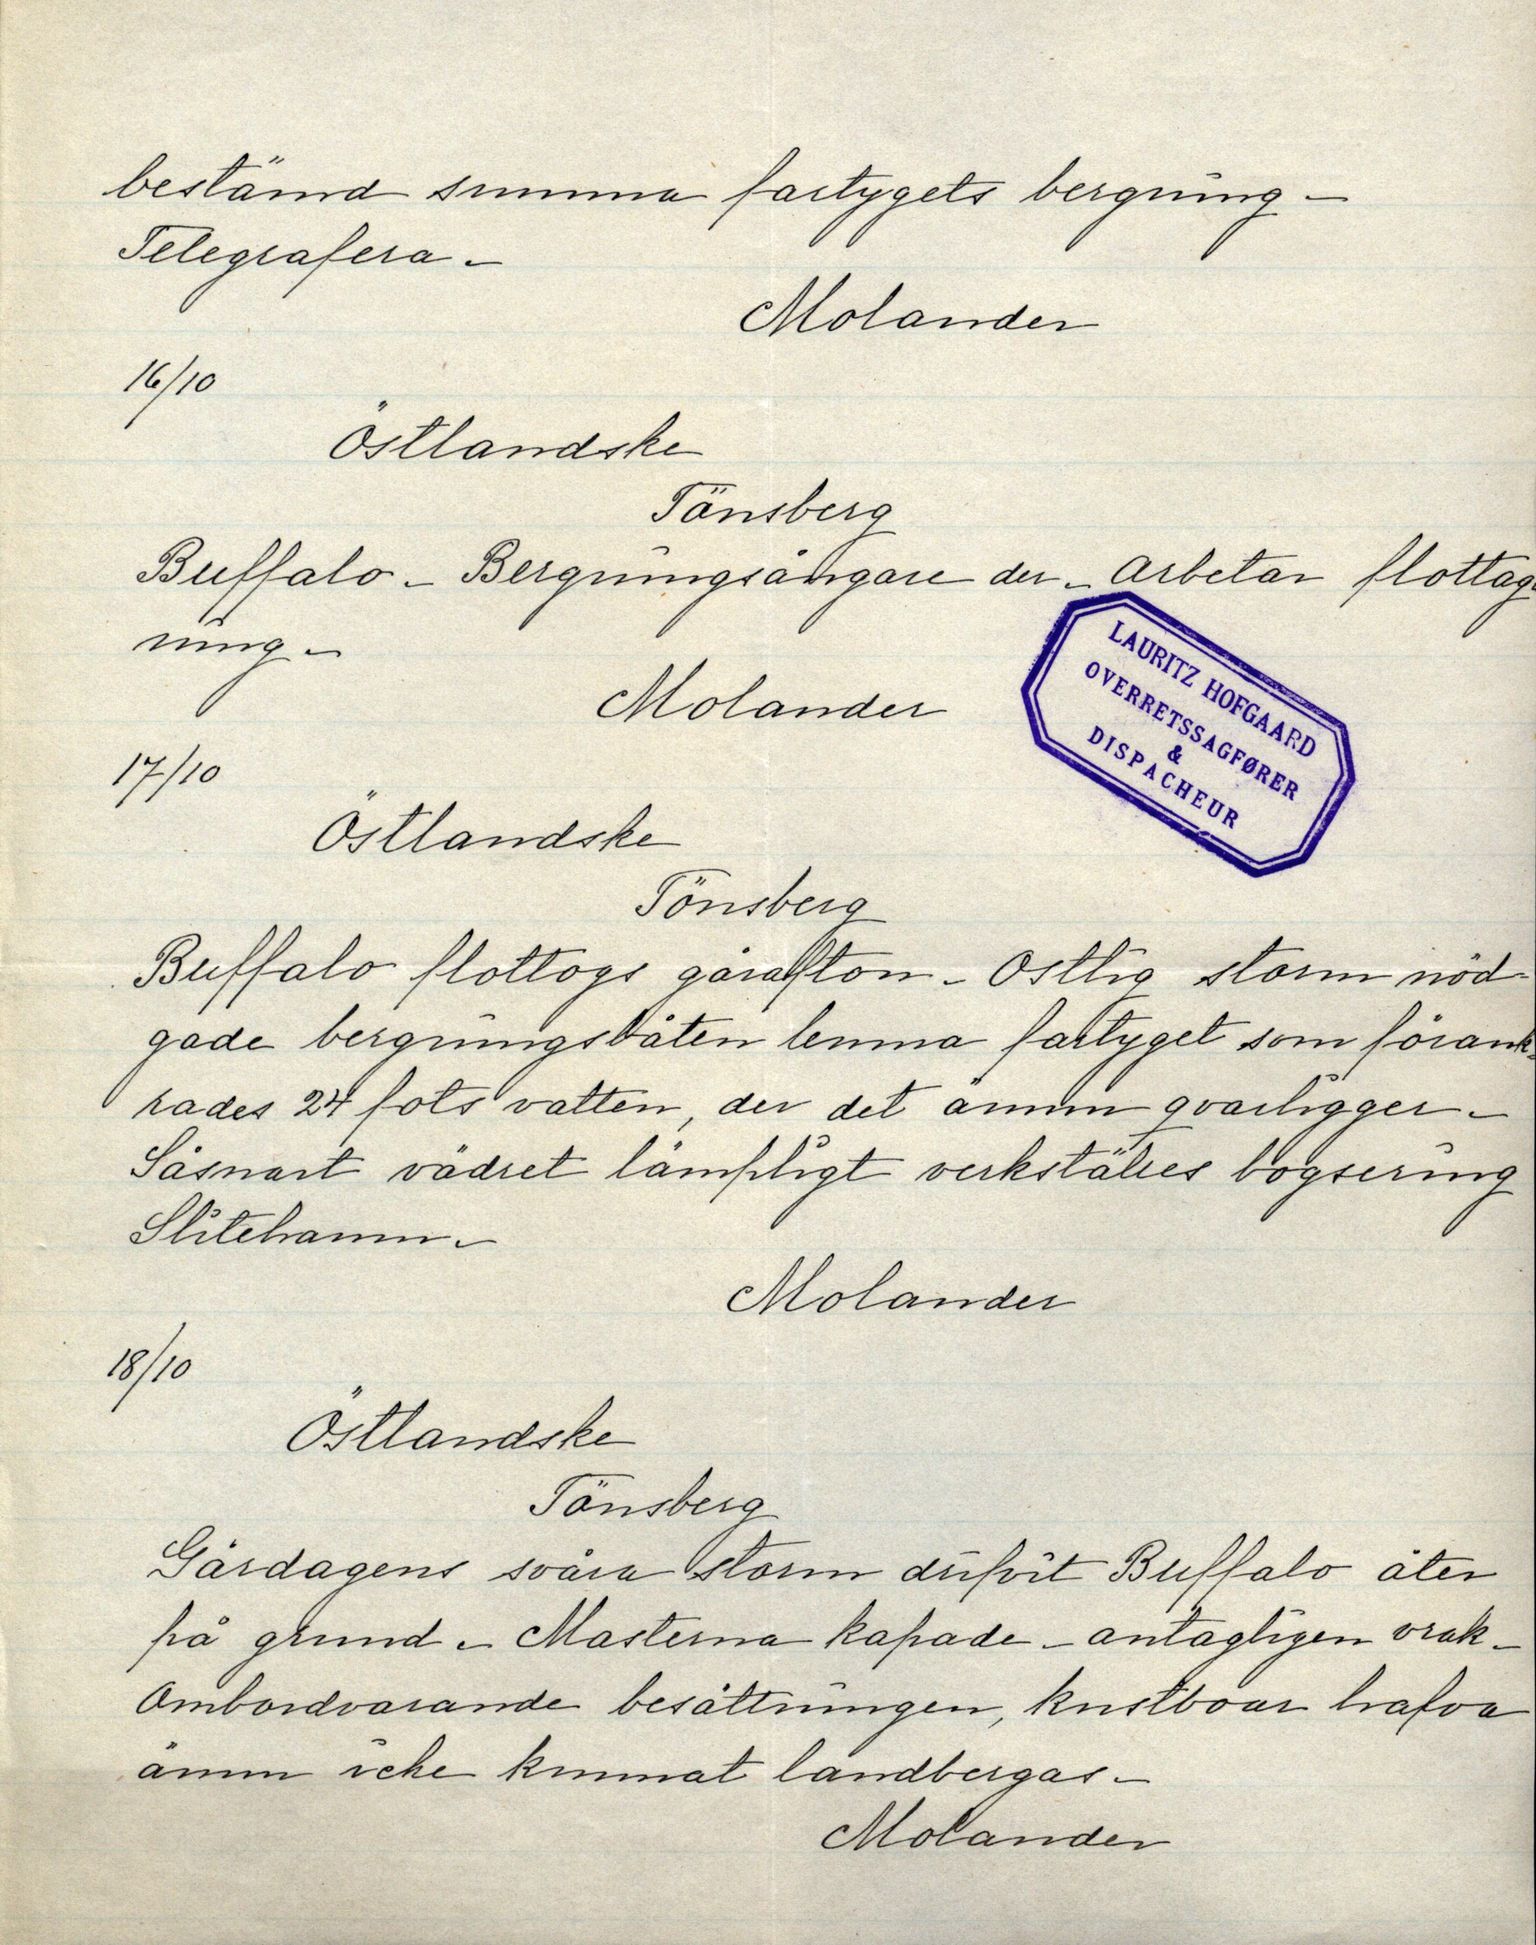 bestämd summa fartygets bergning –
Telegrafera –
Molander
16/10
Östlandske
Tönsberg
Buffalo – Bergningsångare der – Arbetar flottag-
ning –
Molander
LAURITZ HOFGAARD
OVERRETSSAGFØRER
&
DISPACHEUR
17/10
Östlandske
Tönsberg
Buffalo flottogs gårafton – Ostlig storm nöd-
gade bergningsbåten lemna fartyget som förank-
rades 24 fots vatten, der det ännu qvarligger –
Såsnart vädret lämpligt verkställes bogsering
Slitehamn –
Molander
18/10
Östlandske
Tönsberg
Gårdagens svåra storm drifvit Buffalo åter
på grund – Masterna kapade – antagligen vrak –
Ombordvarande besättningen, kustboar hafva
ännu icke kunnat landbergas –
Molander